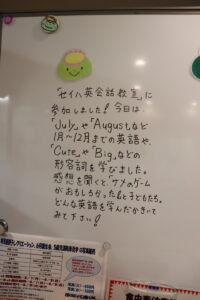 「セイハ英会話教室」に
参加しました！今日は
「July」や「August」など
1月～12月までの英語や、
「Cute」や「Big」などの
形容詞を学びました。
感想を聞くと、「サメのゲーム
がおもしろかった」と子どもたち。
どんな英語を学んだかきいて
みて下さい！